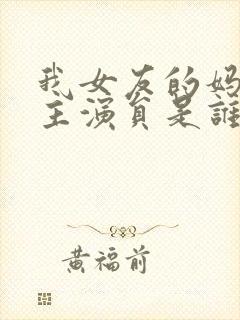 我女友的妈
主演員是誰
黄福前